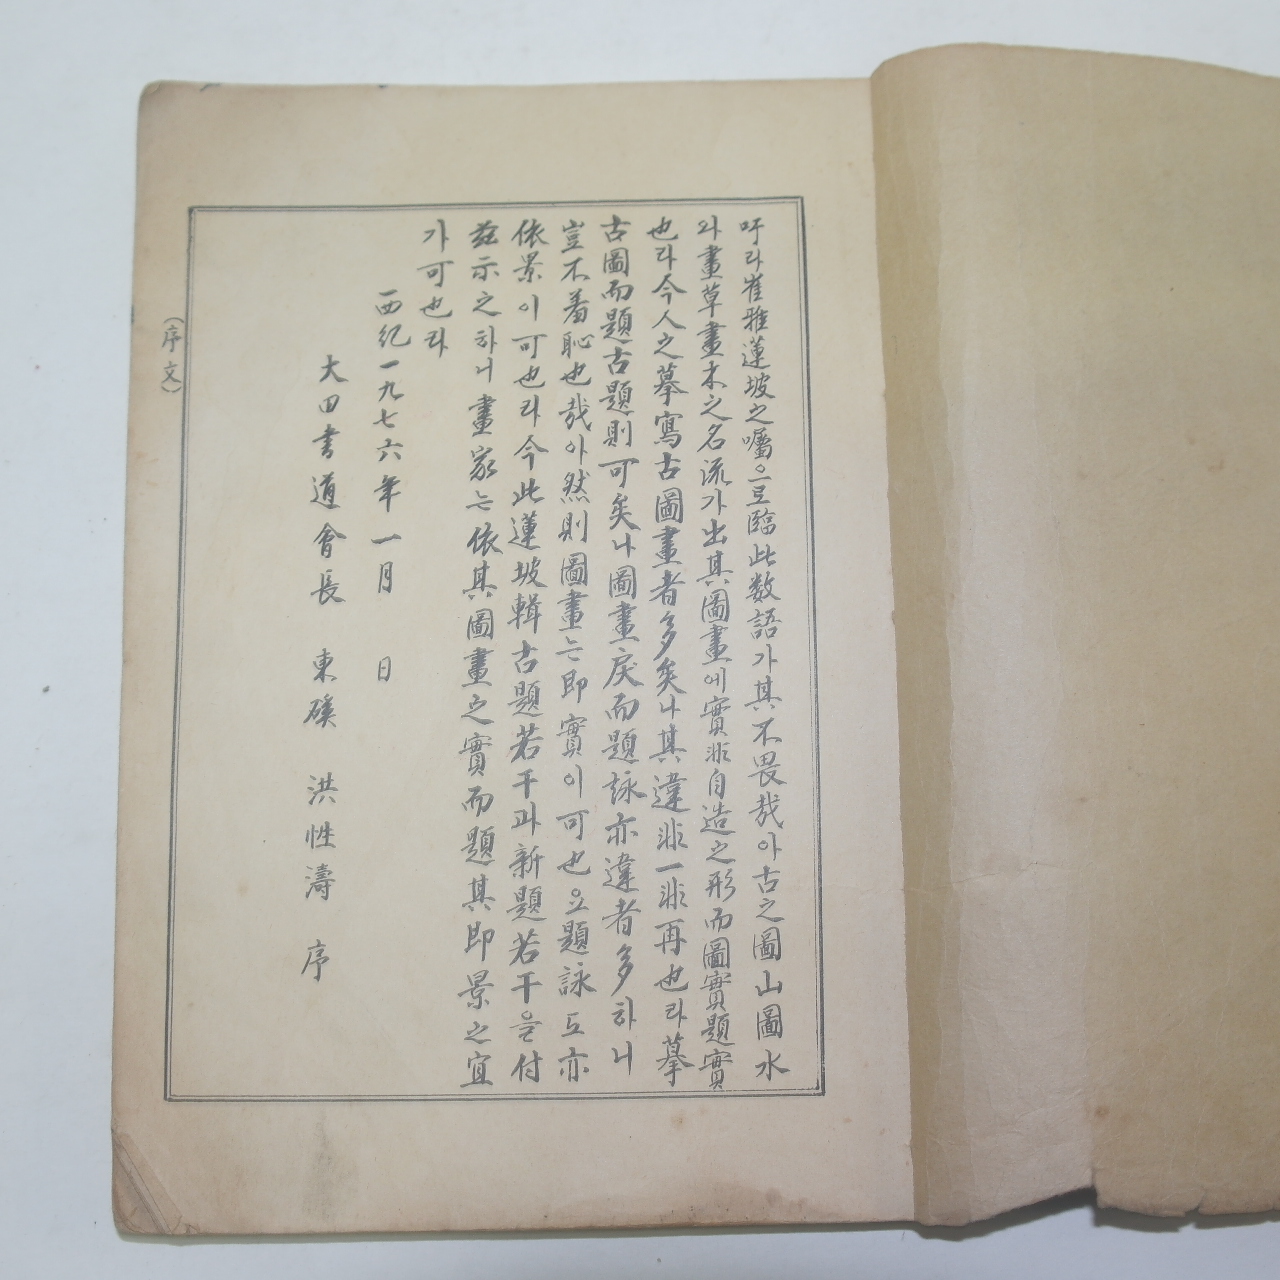 吁라崔雅蓮坡之囑으로臨此数語가其不畏哉아古之圖山圖水
와畫草畫木之名流가出其圖畫에實非自造之形而圖實題實
也라今人之摹寫古圖畫者多矣나其違非一非再也라摹
古圖而題古題則可矣나圖畫戾而題詠亦違者多하니
豈不羞恥也哉아然則圖畫는即實이可也요題詠도亦
依景이可也라今此蓮坡輯古題若干과新題若干을付
玆示之하니畫家는依其圖畫之實而題其即景之宜
가可也라
西紀一九七六年一月 日
大田書道會長 東磎 洪性濤 序
(序文)